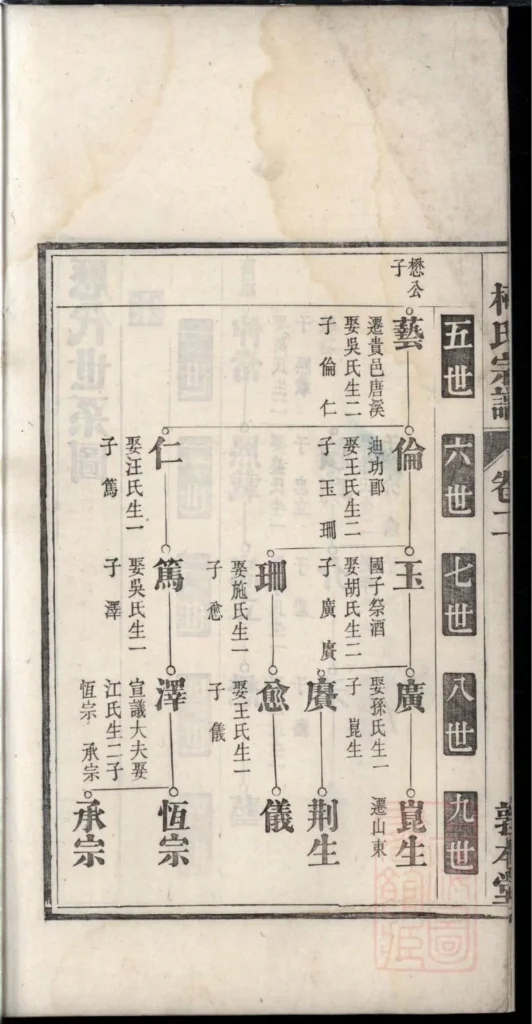 氏宗譜
卷二
敦本堂
五世
六世
七世
八世
九世
懋公
子
藝
遷貴邑唐溪
娶吳氏生二
子 倫 仁
倫
迪功郎
娶王氏生二
子 玉 珊
仁
娶汪氏生一
子 篤
玉
國子祭酒
娶胡氏生二
子 廣
珊
娶施氏生一
子 愈
篤
娶吳氏生一
子 澤
廣
娶孫氏生一
子 崑生
愈
娶王氏生一
子 儀
澤
宣議大夫娶
江氏生二子
恆宗 承宗
崑生
遷山東
荆生
儀
恆宗
承宗